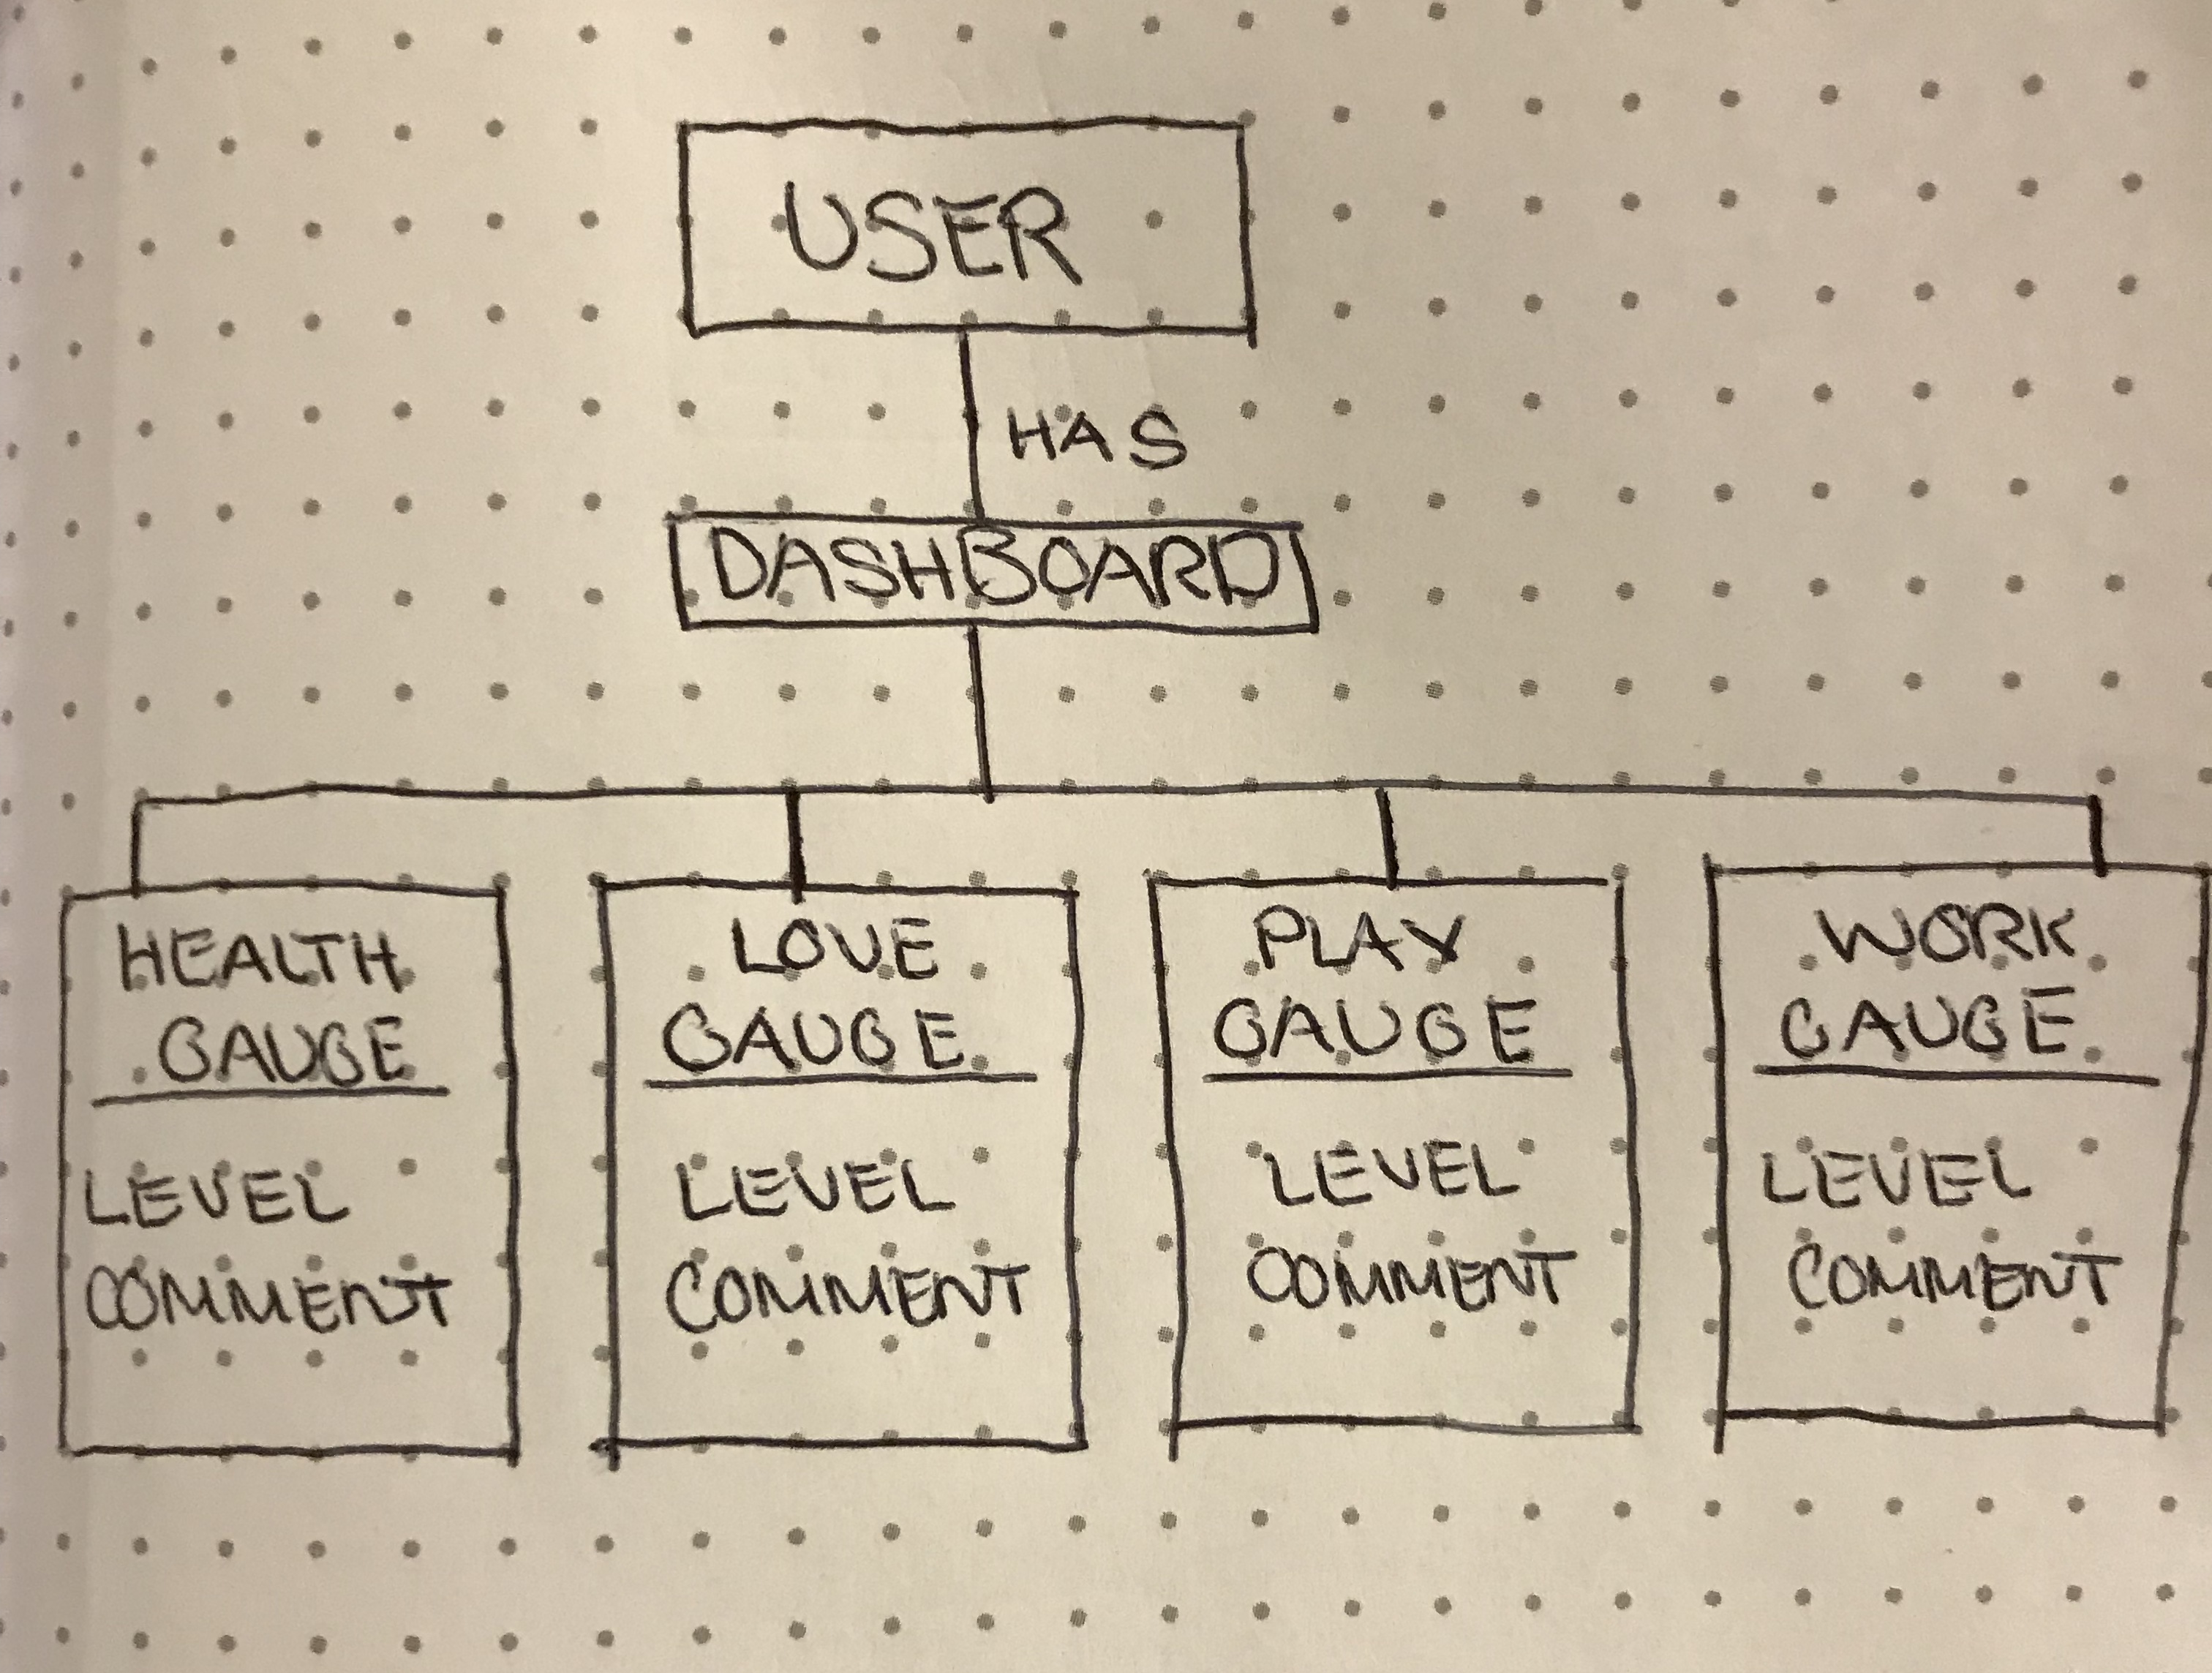 USER
HAS
DASHBOARD
HEALTH
GAUGE
LEVEL
COMMENT
LOVE
GAUGE
LEVEL
COMMENT
PLAY
GAUGE
LEVEL
COMMENT
WORK
GAUGE
LEVEL
COMMENT